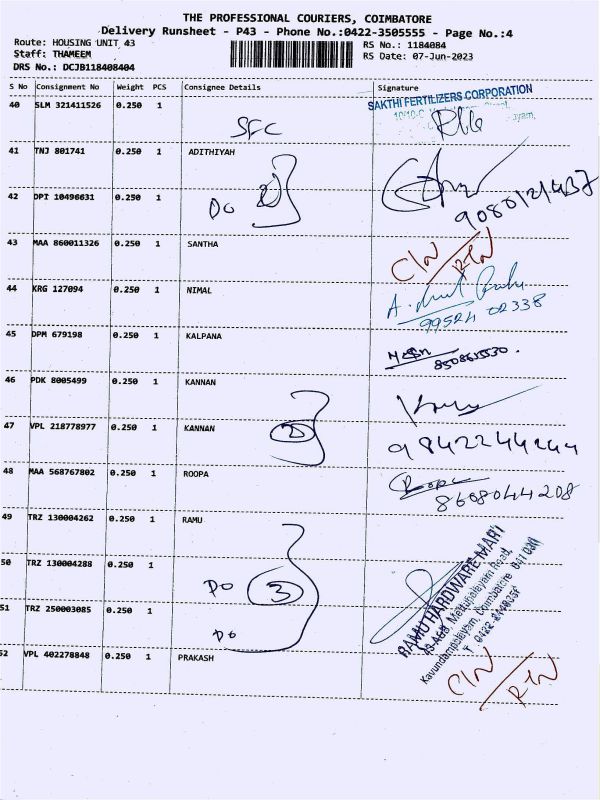 THE PROFESSIONAL COURIERS, COIMBATORE
Delivery Runsheet - P43 - Phone No.:0422-3505555 - Page No.:4
Route: HOUSING UNIT 43 RS No.: 1184084
Staff: THAMEEM RS Date: 07-Jun-2023
DRS No.: DCJB118408404
S No Consignment No Weight PCS Consignee Details Signature
40 SLM 321411526 0.250 1 SFC SAKTHI FERTILIZERS CORPORATION
41 TNJ 801741 0.250 1 ADITHIYAH
42 DPI 10496631 0.250 1 Do 2 9080121437
43 MAA 860011326 0.250 1 SANTHA C/N RTN
44 KRG 127094 0.250 1 NIMAL
99524 02338
45 DPM 679198 0.250 1 KALPANA
46 PDK 8005499 0.250 1 KANNAN
47 VPL 218778977 0.250 1 KANNAN 2 9842244244
48 MAA 568767802 0.250 1 ROOPA Roopa
8608044208
49 TRZ 130004262 0.250 1 RAMU
50 TRZ 130004288 0.250 1 Do 3
51 TRZ 250003085 0.250 1 Do
RAMU HARDWARE MART
Mettupalayam Road,
Kavundampalayam, Coimbatore
52 VPL 402278848 0.250 1 PRAKASH C/N RTN